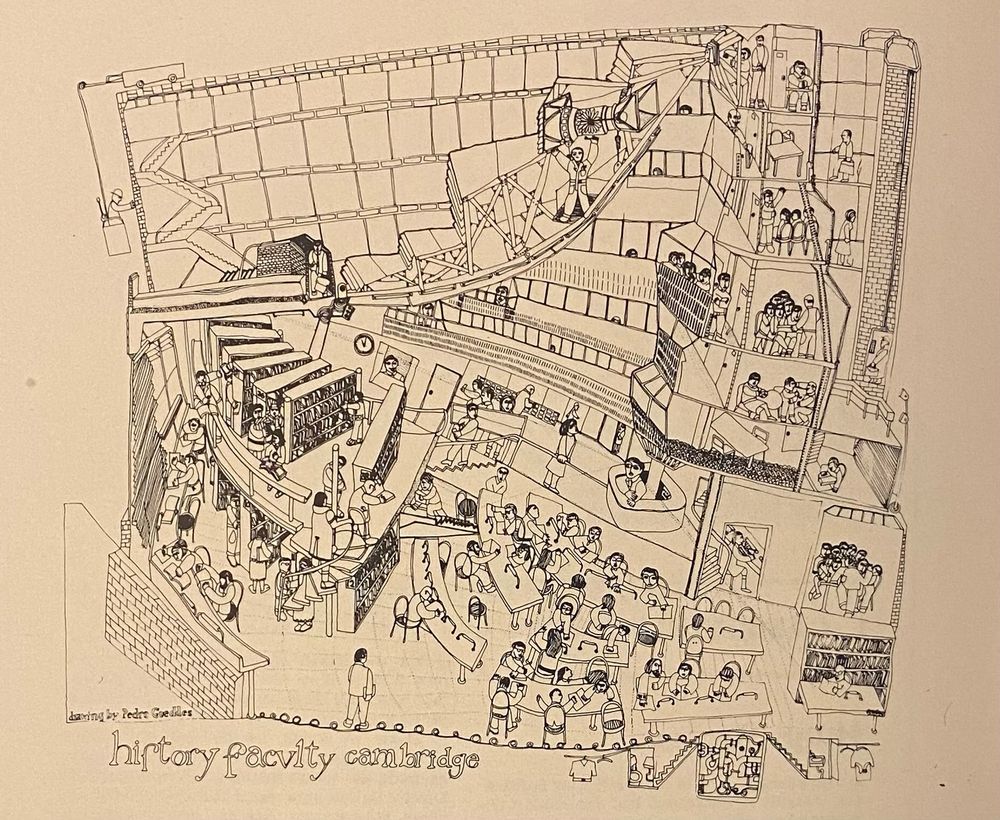 drawing by Pedro Guedes
history faculty cambridge